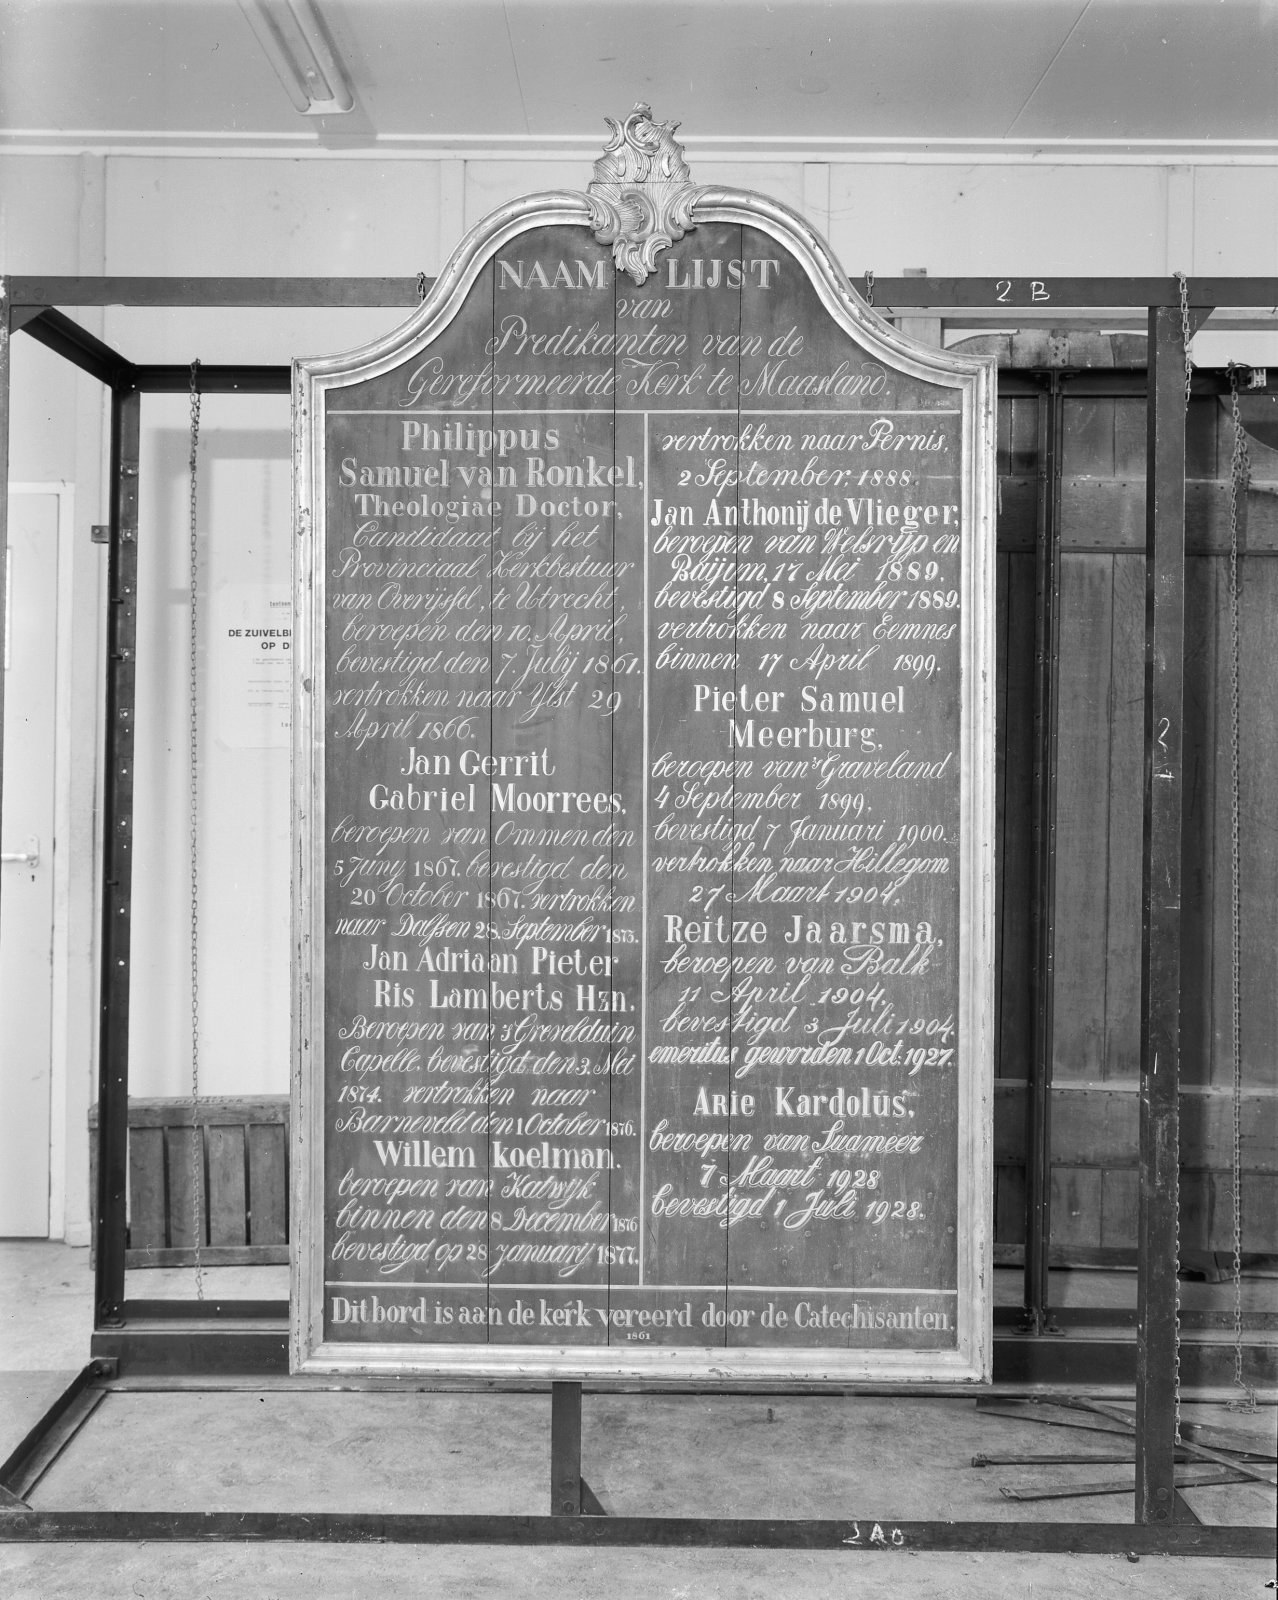 NAAM LIJST
van
Predikanten van de
Gereformeerde Kerk te Maasland.
Philippus
Samuel van Ronkel,
Theologiae Doctor,
Candidaat bij het
Provinciaal Kerkbestuur
van Overijssel, te Utrecht,
beroepen den 10. April,
bevestigd den 7. Julij 1861.
vertrokken naar Ylst 29
April 1866.
Jan Gerrit
Gabriel Moorrees,
beroepen van Ommen den
5 Juny 1867. bevestigd den
20 October 1867. vertrokken
naar Dalfsen 28. September 1873.
Jan Adriaan Pieter
Ris Lamberts Hzn,
Beroepen van 's Grevelduin
Capelle. bevestigd den 3. Mei
1874. vertrokken naar
Barneveld den 1 October 1876.
Willem koelman.
beroepen van Katwijk
binnen den 8. December 1876
bevestigd op 28 januarij 1877.
vertrokken naar Pernis,
2 September. 1888.
Jan Anthonij de Vlieger,
beroepen van Welsrijp en
Baijum, 17 Mei 1889.
bevestigd 8 September 1889.
vertrokken naar Eemnes
binnen 17 April 1899.
Pieter Samuel
Meerburg,
beroepen van 's Graveland
4 September 1899.
bevestigd 7 Januari 1900.
vertrokken naar Hillegom
27 Maart 1904.
Reitze Jaarsma,
beroepen van Balk
11 April 1904.
bevestigd 3 Juli 1904.
emeritus geworden 1 Oct: 1927.
Arie Kardolus,
beroepen van Suameer
7 Maart 1928
bevestigd 1 Juli 1928.
Dit bord is aan de kerk vereerd door de Catechisanten.
1861
2 B
DE ZUIVELB
OP D
2 A